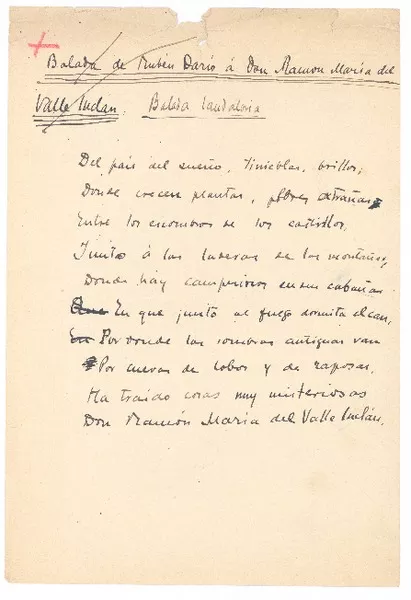 Balada de Rubén Darío á Don Ramon María del
Valle Inclan. Balada laudatoria
Del país del sueño, tinieblas, brillos,
Donde crecen plantas, flores extrañas,
Entre los escombros de los castillos,
Junto á las laderas de las montañas,
Donde hay campesinos en sus cabañas
En que junto al fuego dormita el can,
Por donde las sombras antiguas van
Por cuevas de lobos y de raposas,
Ha traído cosas muy misteriosas
Don Ramón María del Valle Inclán.